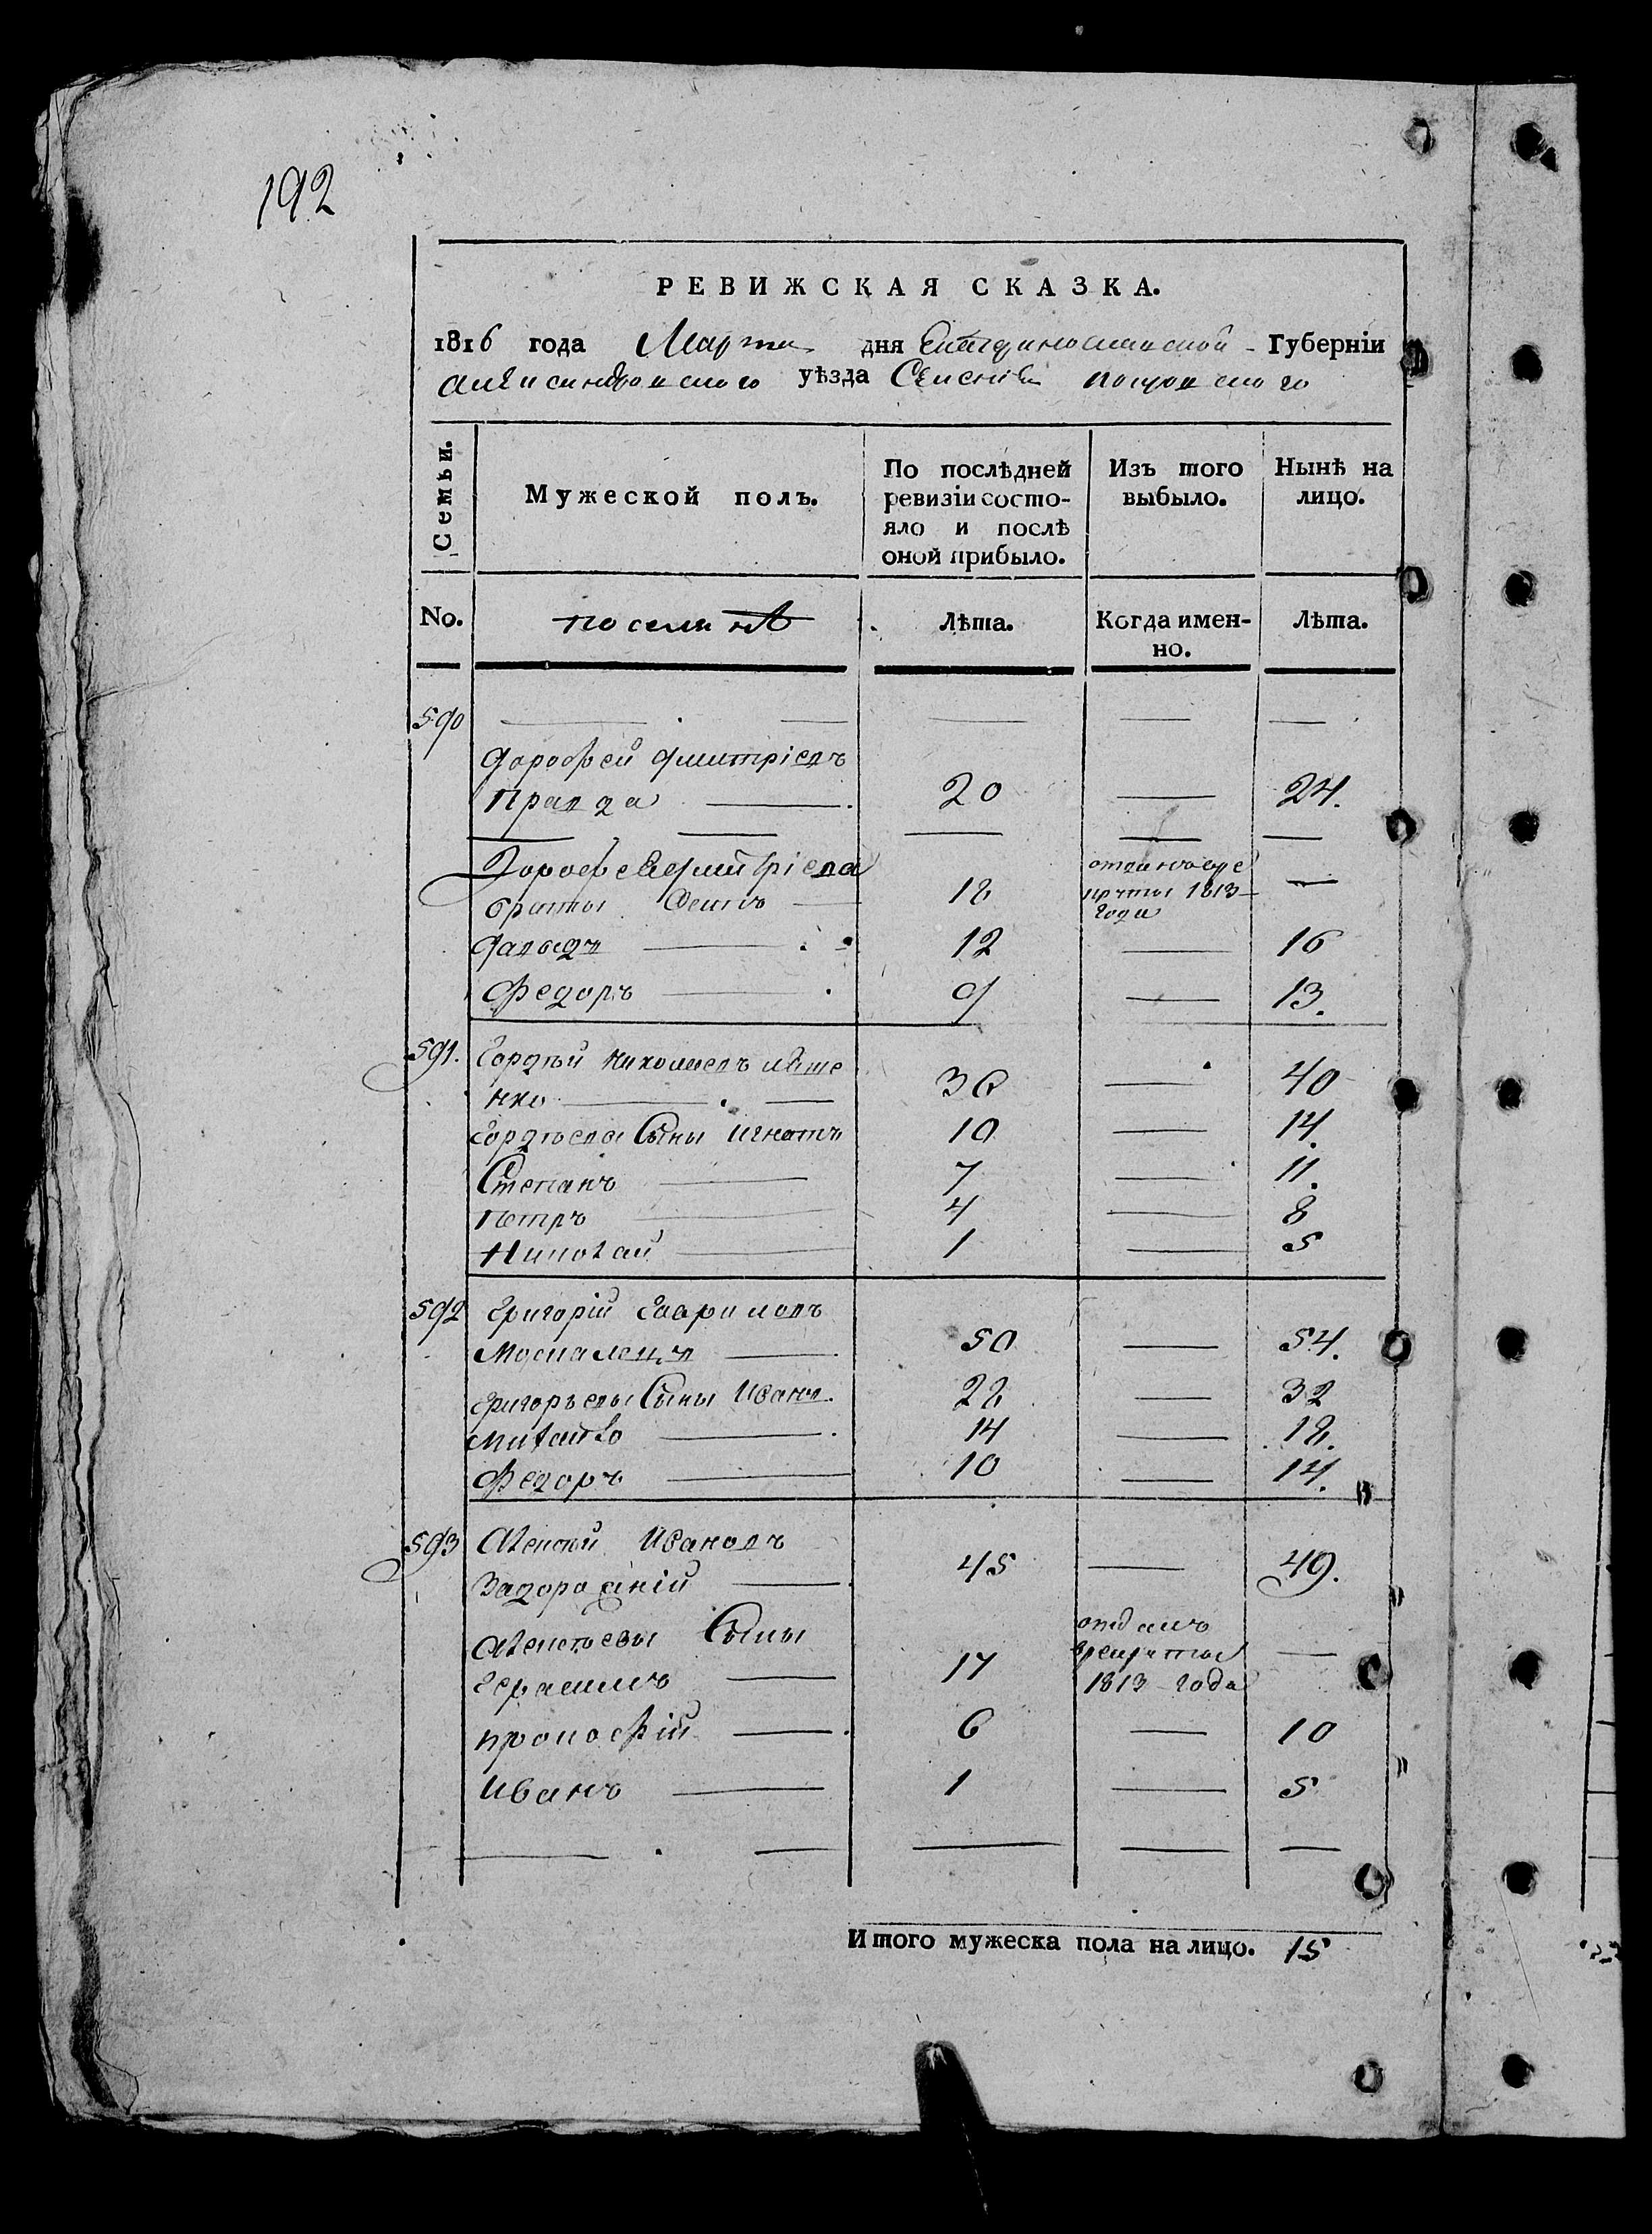 192
РЕВИЖСКАЯ СКАЗКА.
1816 года Марта дня Екатеринославской Губерніи
Александровского уѣзда Селенія Покровского
Семьи. Мужеской полъ. По послѣдней ревизіи состояло и послѣ оной прибыло. Изъ того выбыло. Нынѣ на лицо.
No. Лѣта. Когда именно. Лѣта.
590
Дорофей Дмитріевъ
Правда 20 — 24.
Дорофея Дмитріева
браты 18 отдан в рекруты 1813 года —
Давыдъ 12 — 16
Федоръ 9 — 13.
591. Гордѣй
нко 36 — 40
Гордѣева Сыны Игнатъ 10 — 14.
Степанъ 7 — 11.
Петръ 4 — 8
Николай 1 — 5
592 Григорій Гавриловъ
Москаленъ 50 — 54.
Григорьевы Сыны Иванъ 28 — 32
Михайло 14 — 18.
Федоръ 10 — 14.
593 Алексѣй Ивановъ
Задорожній 45 — 49.
Алексѣевы Сыны
Герасимъ 17 отданъ в рекруты 1813 года —
Прокофій 6 — 10
Иванъ 1 — 5
Итого мужеска пола на лицо. 15